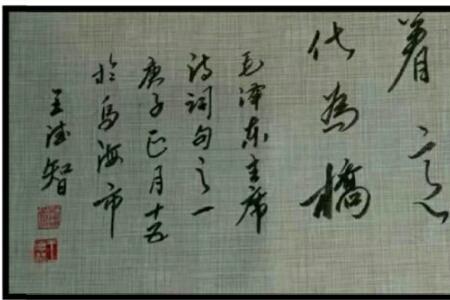 着意
化为橋
毛泽东主席
诗词句之一
庚子正月十五
於乌海市
王德智